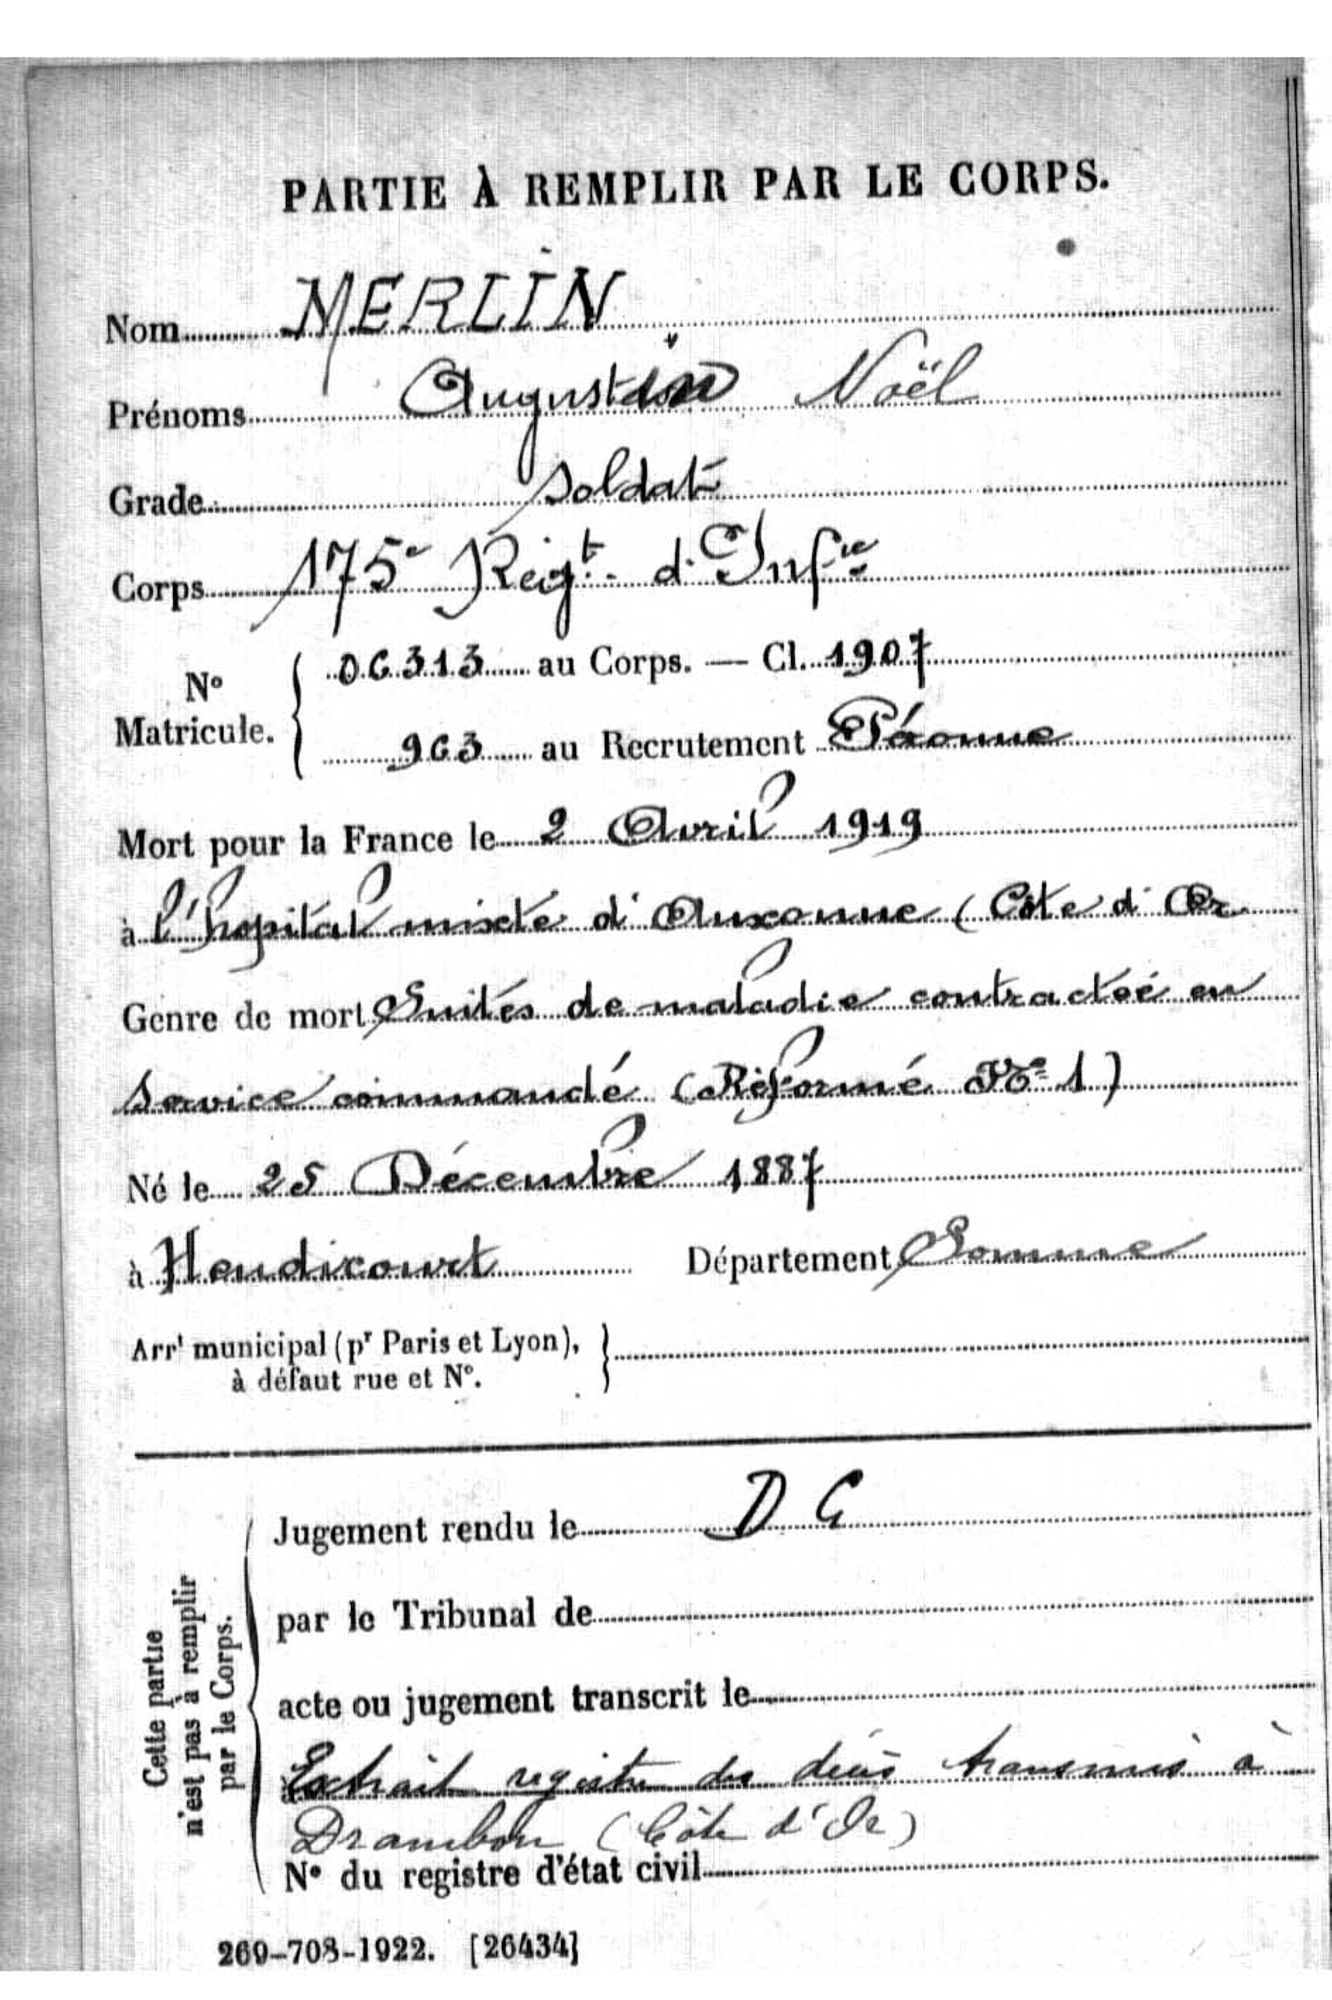 PARTIE À REMPLIR PAR LE CORPS.
Nom MERLIN
Prénoms Augustin Noël
Grade soldat
Corps 175e Reigt. d'Infie
No 06313 au Corps. — Cl. 1907
Matricule. 963 au Recrutement Péronne
Mort pour la France le 2 Avril 1919
à l'hopital mixte d'Auxonne (Côte d'Or
Genre de mort Suites de maladie contractée en
service commandé (Réformé No 1)
Né le 25 Décembre 1887
à Heudicourt Département Somme
Arrt municipal (pr Paris et Lyon),
à défaut rue et No.
Cette partie
n'est pas à remplir
par le Corps.
Jugement rendu le D C
par le Tribunal de
acte ou jugement transcrit le
Extrait registre des décès transmis à
Drambon (Côte d'Or)
No du registre d'état civil
269-708-1922. [26434]